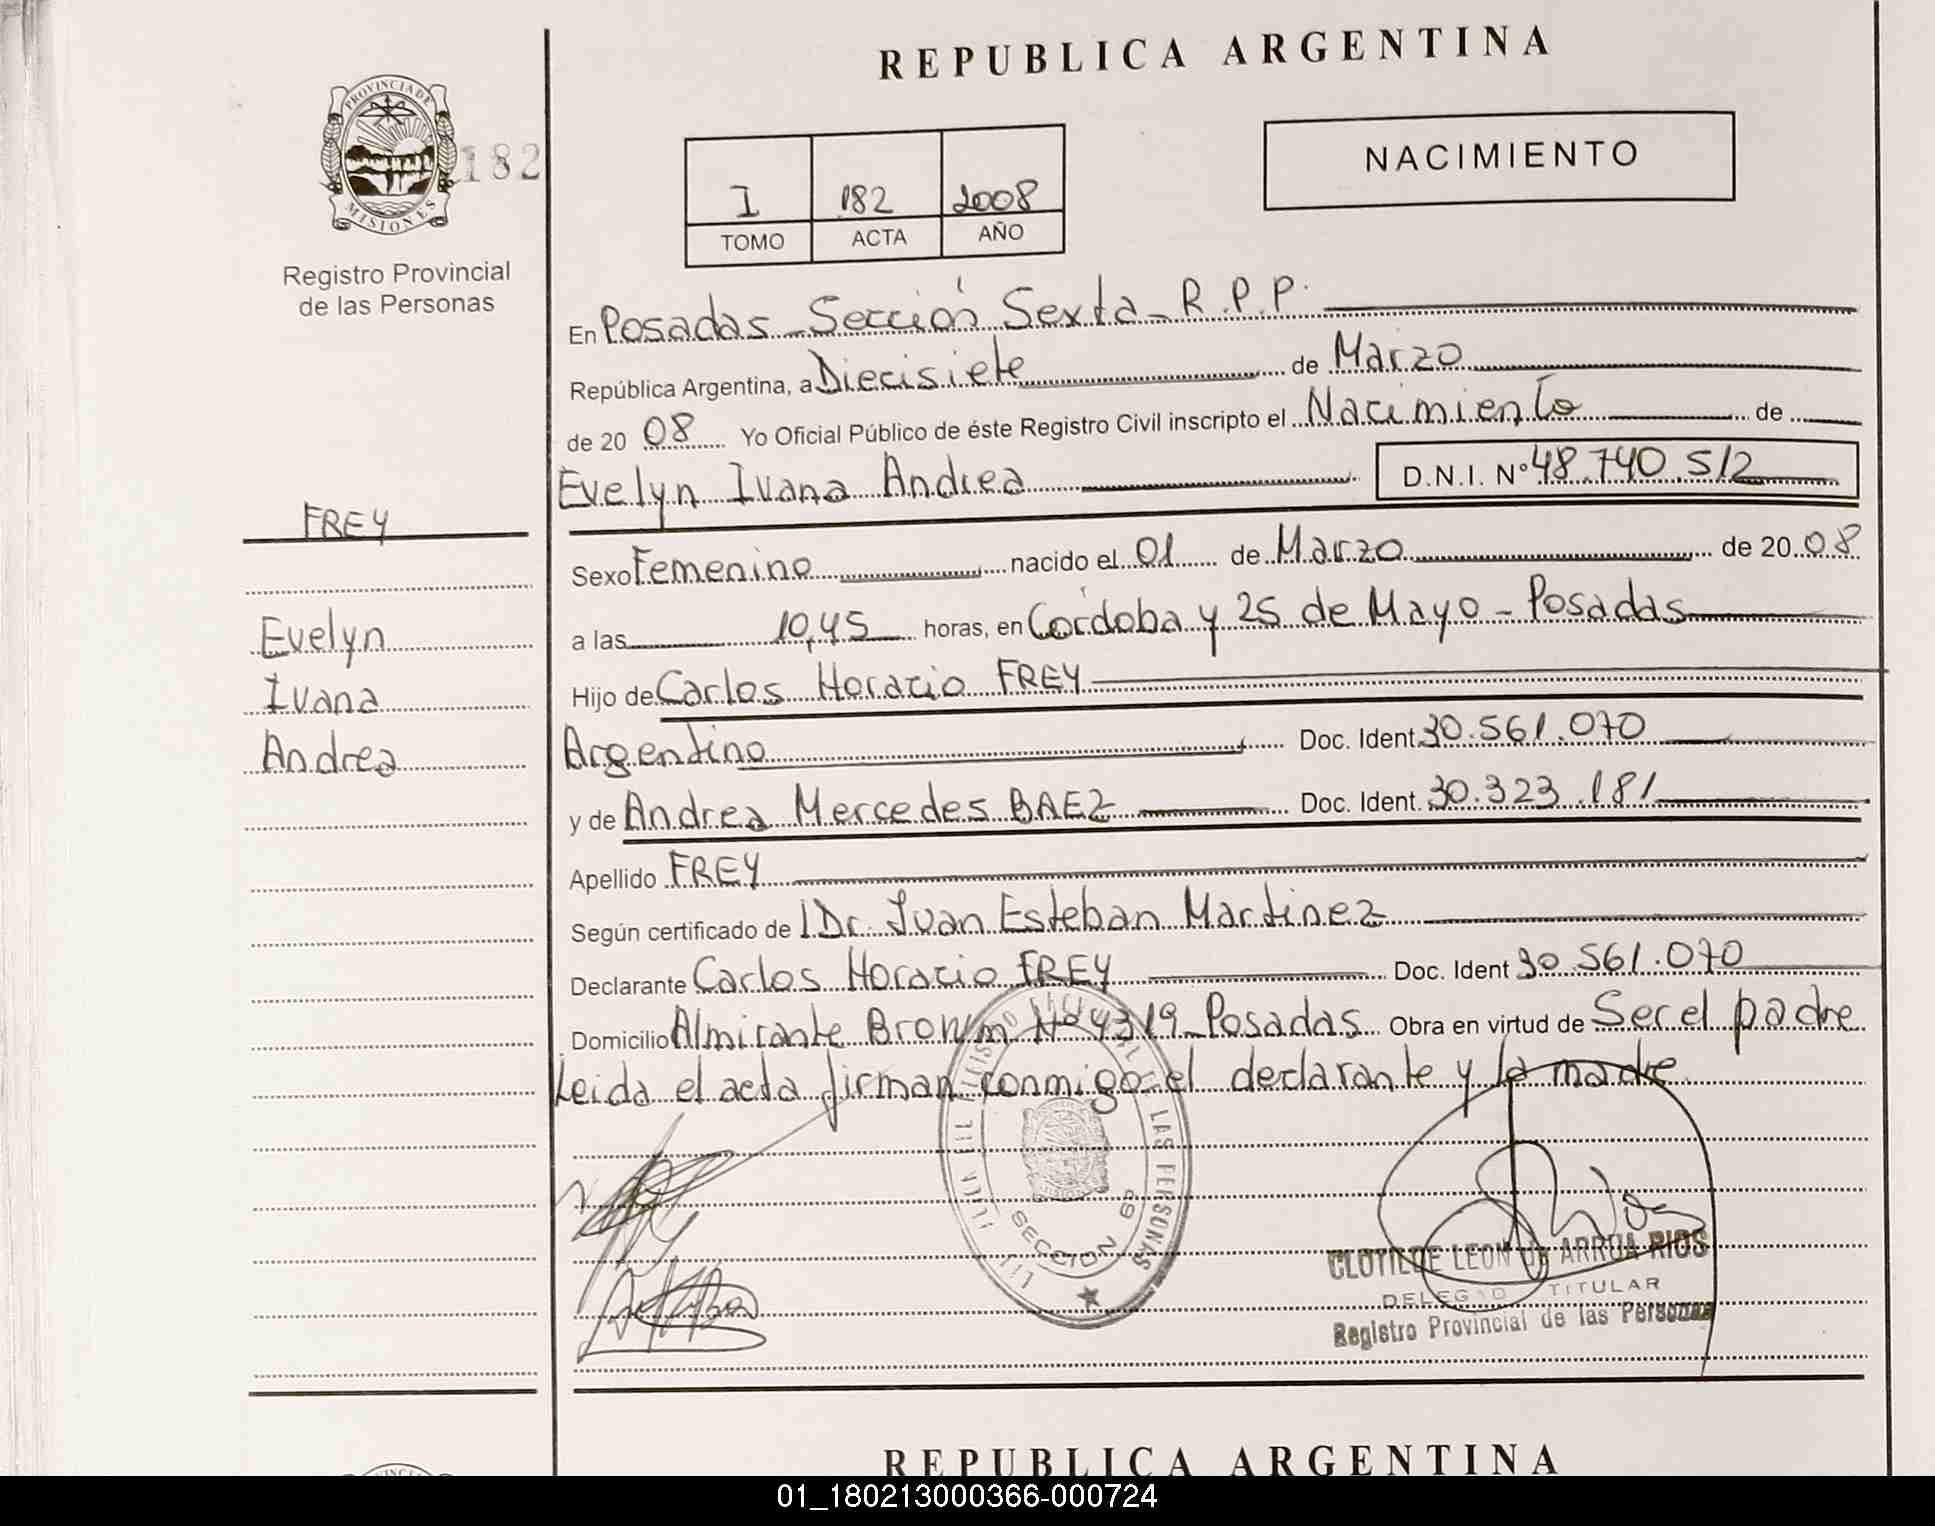 REPUBLICA ARGENTINA
PROVINCIA DE
MISIONES
182
Registro Provincial
de las Personas
NACIMIENTO
I 182 2008
TOMO ACTA AÑO
En Posadas - Sección Sexta - R.P.P.
República Argentina, a Diecisiete de Marzo
de 20 08 Yo Oficial Público de éste Registro Civil inscripto el Nacimiento de
Evelyn Ivana Andrea D.N.I. Nº 48.740.512
FREY
Evelyn
Ivana
Andrea
Sexo Femenino nacido el 01 de Marzo de 20 08
a las 10,45 horas, en Córdoba y 25 de Mayo - Posadas
Hijo de Carlos Horacio FREY
Argentino Doc. Ident. 30.561.070
y de Andrea Mercedes BAEZ Doc. Ident. 30.323.181
Apellido FREY
Según certificado de Dr. Juan Esteban Martinez
Declarante Carlos Horacio FREY Doc. Ident 30.561.070
Domicilio Almirante Brown Nº 4319 - Posadas Obra en virtud de Ser el padre
Leida el acta firman conmigo el declarante y la madre
LAS PERSONAS
SECCION 6ª
CLOTILDE LEON DE ARRUA RIOS
TITULAR
Registro Provincial de las Personas
REPUBLICA ARGENTINA
01_180213000366-000724